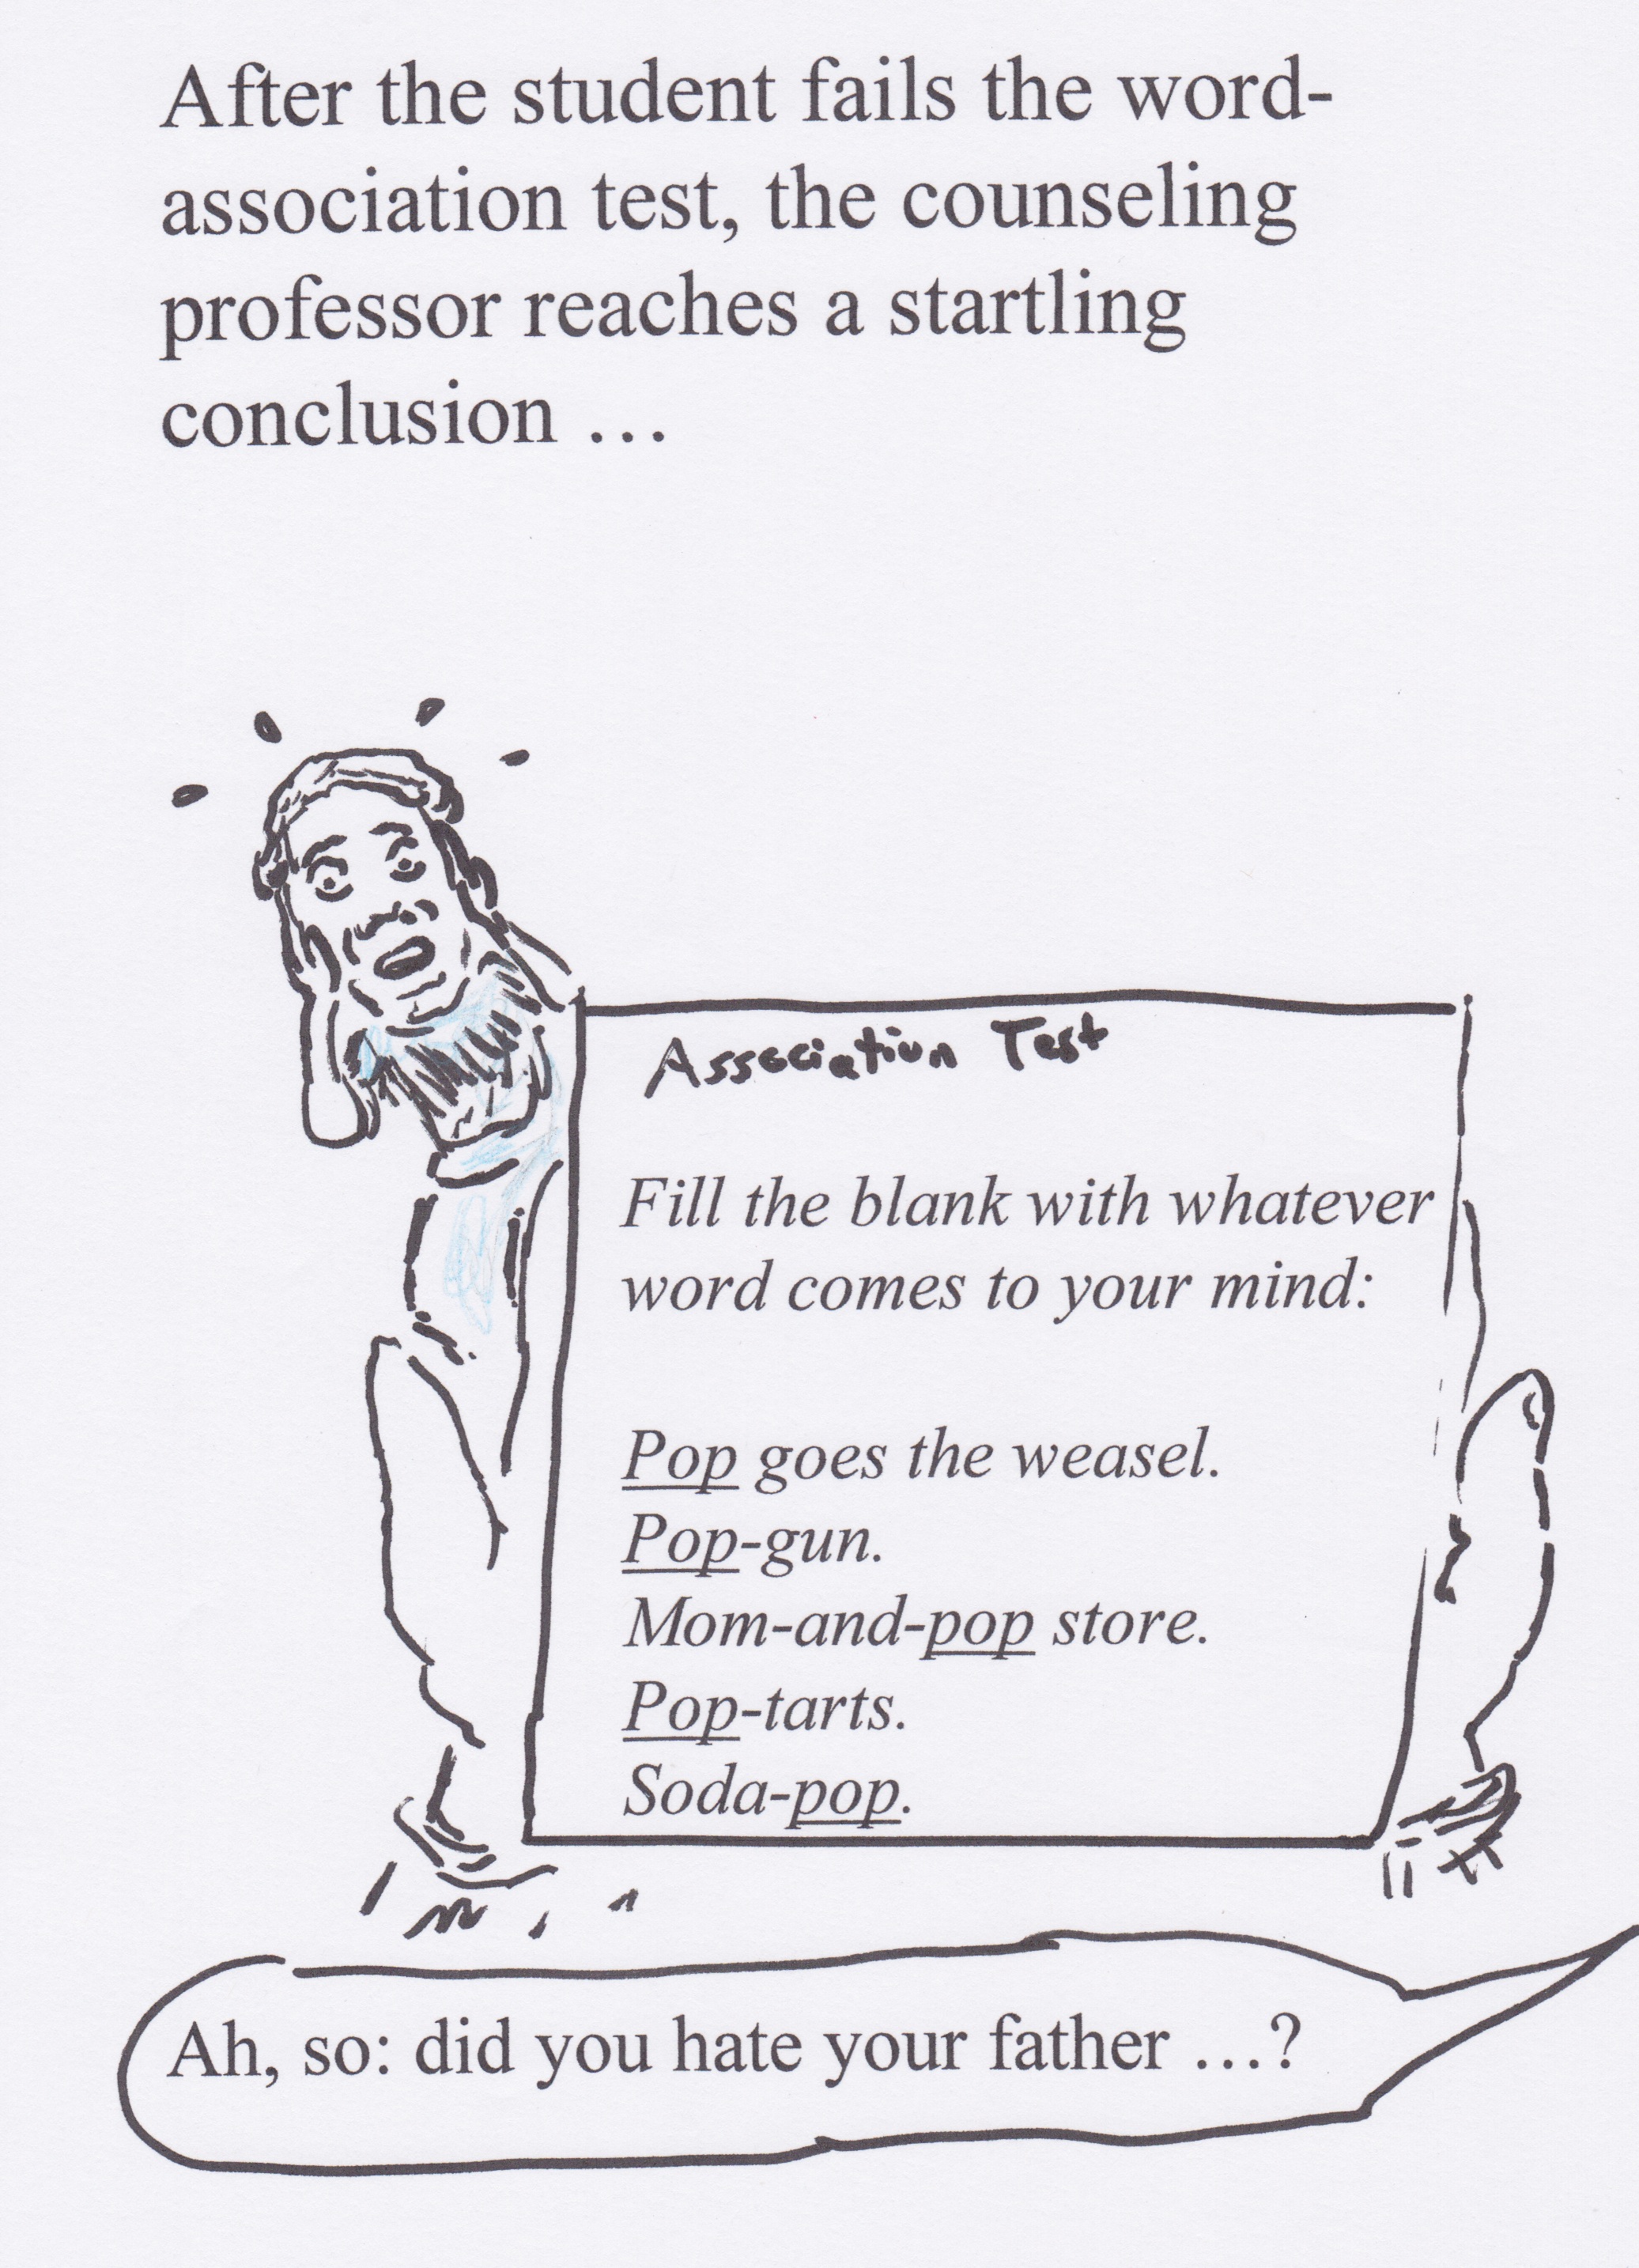 After the student fails the word-
association test, the counseling
professor reaches a startling
conclusion …
Association Test
Fill the blank with whatever
word comes to your mind:
Pop goes the weasel.
Pop-gun.
Mom-and-pop store.
Pop-tarts.
Soda-pop.
Ah, so: did you hate your father …?